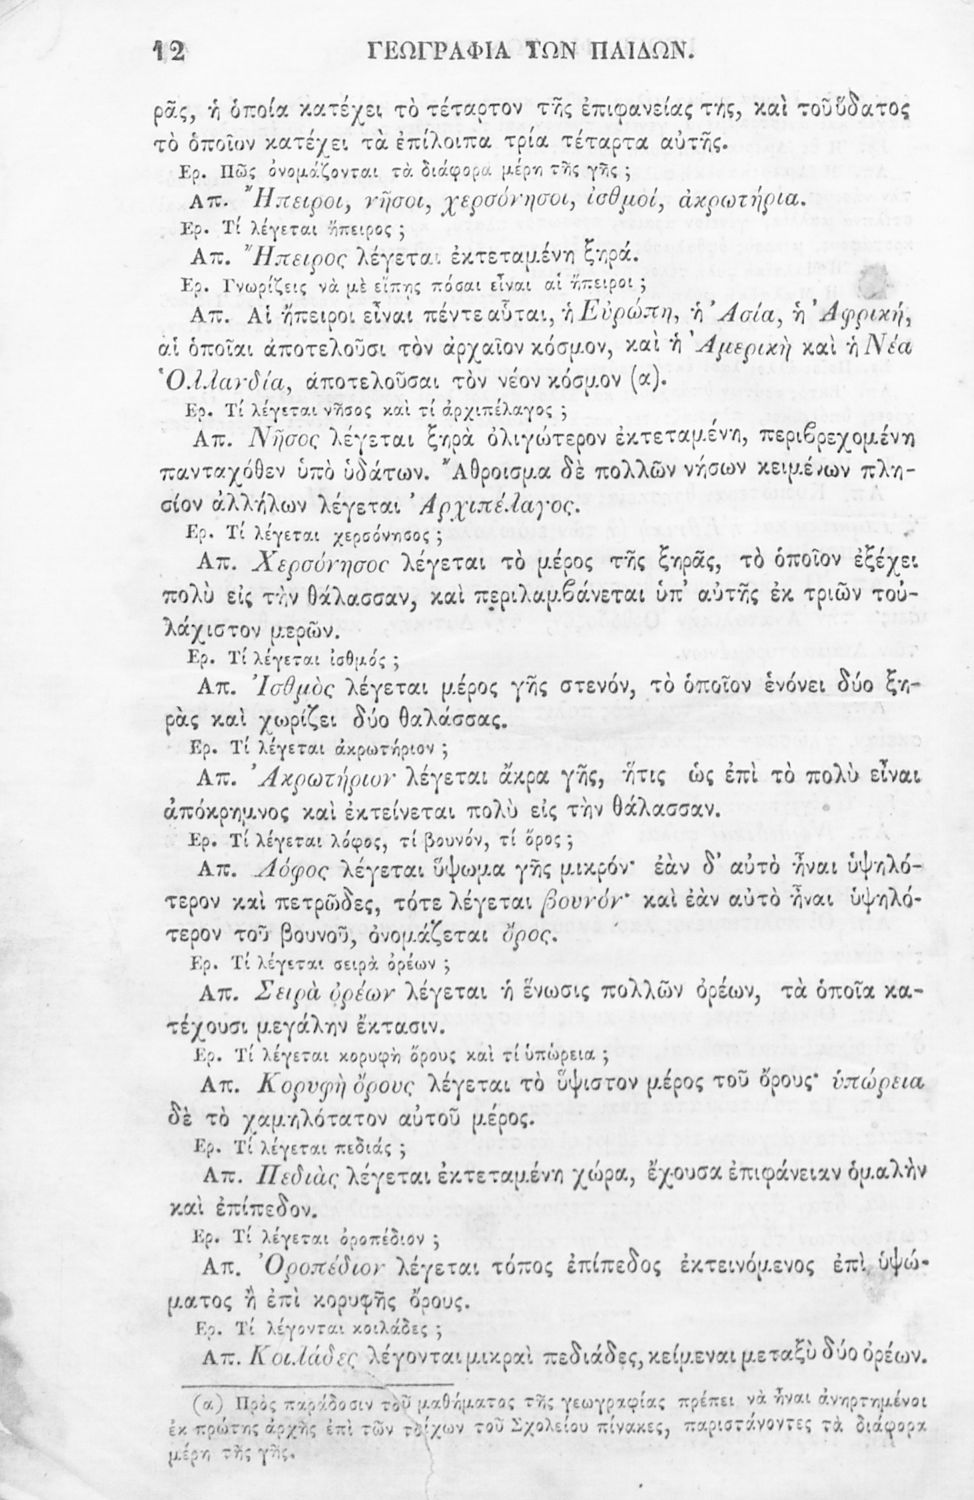 12 ΓΕΩΓΡΑΦΙΑ ΤΩΝ ΠΑΙΔΩΝ.
ρᾶς, ἡ ὁποία κατέχει τὸ τέταρτον τῆς ἐπιφανείας τής, καὶ τοῦ ὕδατος
τὸ ὁποῖον κατέχει τὰ ἐπίλοιπα τρία τέταρτα αὐτῆς.
Ερ. Πῶς ὀνομάζονται τὰ διάφορα μέρη τῆς γῆς ;
Απ. Ἤπειροι, νῆσοι, χερσόνησοι, ἰσθμοί, ἀκρωτήρια.
Ερ. Τί λέγεται ἤπειρος ;
Απ. Ἤπειρος λέγεται ἐκτεταμένη ξηρά.
Ερ. Γνωρίζεις νὰ μὲ εἴπῃς πόσαι εἶναι αἱ ἤπειροι ;
Απ. Αἱ ἤπειροι εἶναι πέντε αὗται, ἡ Εὐρώπη, ἡ Ἀσία, ἡ Ἀφρική,
αἱ ὁποῖαι ἀποτελοῦσι τὸν ἀρχαῖον κόσμον, καὶ ἡ Ἀμερικὴ καὶ ἡ Νέα
Ὁλλανδία, ἀποτελοῦσαι τὸν νέον κόσμον (α).
Ερ. Τί λέγεται νῆσος καὶ τί ἀρχιπέλαγος ;
Απ. Νῆσος λέγεται ξηρὰ ὀλιγώτερον ἐκτεταμένη, περιβρεχομένη
πανταχόθεν ὑπὸ ὑδάτων. Ἄθροισμα δὲ πολλῶν νήσων κειμένων πλη-
σίον ἀλλήλων λέγεται Ἀρχιπέλαγος.
Ερ. Τί λέγεται χερσόνησος ;
Απ. Χερσόνησος λέγεται τὸ μέρος τῆς ξηρᾶς, τὸ ὁποῖον ἐξέχει
πολὺ εἰς τὴν θάλασσαν, καὶ περιλαμβάνεται ὑπ' αὐτῆς ἐκ τριῶν τοὐ-
λάχιστον μερῶν.
Ερ. Τί λέγεται ἰσθμός ;
Απ. Ἰσθμὸς λέγεται μέρος γῆς στενόν, τὸ ὁποῖον ἑνόνει δύο ξη-
ρὰς καὶ χωρίζει δύο θαλάσσας.
Ερ. Τί λέγεται ἀκρωτήριον ;
Απ. Ἀκρωτήριον λέγεται ἄκρα γῆς, ἥτις ὡς ἐπὶ τὸ πολὺ εἶναι
ἀπόκρημνος καὶ ἐκτείνεται πολὺ εἰς τὴν θάλασσαν.
Ερ. Τί λέγεται λόφος, τί βουνόν, τί ὄρος ;
Απ. Λόφος λέγεται ὕψωμα γῆς μικρόν· ἐὰν δ' αὐτὸ ἦναι ὑψηλό-
τερον καὶ πετρῶδες, τότε λέγεται βουνόν· καὶ ἐὰν αὐτὸ ἦναι ὑψηλό-
τερον τοῦ βουνοῦ, ὀνομάζεται ὄρος.
Ερ. Τί λέγεται σειρὰ ὀρέων ;
Απ. Σειρὰ ὀρέων λέγεται ἡ ἕνωσις πολλῶν ὀρέων, τὰ ὁποῖα κα-
τέχουσι μεγάλην ἔκτασιν.
Ερ. Τί λέγεται κορυφὴ ὄρους καὶ τί ὑπώρεια ;
Απ. Κορυφὴ ὄρους λέγεται τὸ ὕψιστον μέρος τοῦ ὄρους· ὑπώρεια
δὲ τὸ χαμηλότατον αὐτοῦ μέρος.
Ερ. Τί λέγεται πεδιάς ;
Απ. Πεδιὰς λέγεται ἐκτεταμένη χώρα, ἔχουσα ἐπιφάνειαν ὁμαλὴν
καὶ ἐπίπεδον.
Ερ. Τί λέγεται ὀροπέδιον ;
Απ. Ὀροπέδιον λέγεται τόπος ἐπίπεδος ἐκτεινόμενος ἐπὶ ὑψώ-
ματος ἢ ἐπὶ κορυφῆς ὄρους.
Ερ. Τί λέγονται κοιλάδες ;
Απ. Κοιλάδες λέγονται μικραὶ πεδιάδες, κείμεναι μεταξὺ δύο ὀρέων.
(α) Πρὸς παράδοσιν τοῦ μαθήματος τῆς γεωγραφίας πρέπει νὰ ἦναι ἀνηρτημένοι
ἐκ πρώτης ἀρχῆς ἐπὶ τῶν τοίχων τοῦ Σχολείου πίνακες, παριστάνοντες τὰ διάφορα
μέρη τῆς γῆς.